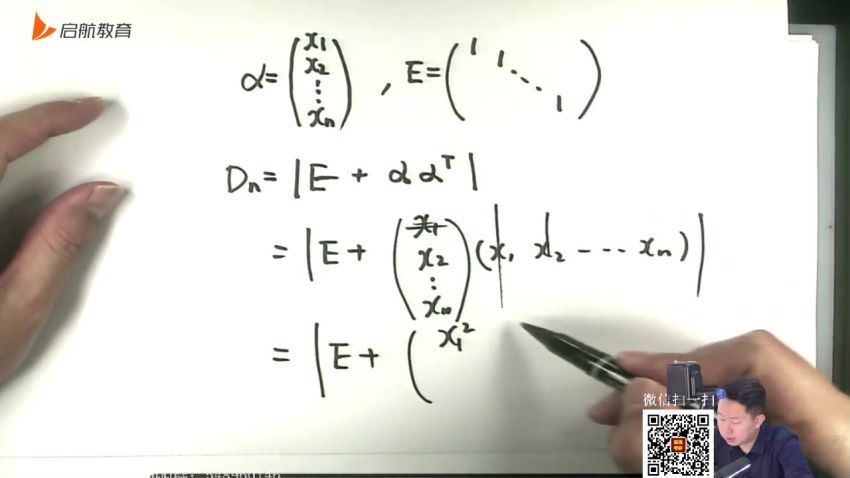 启航教育
α=(x₁ x₂ ⋮ xₙ), E=(1 1 ⋱ 1)
Dₙ=|E+αα^T|
=|E+(x₁ x₂ ⋮ xₙ)(x₁ x₂ ---- xₙ)|
=|E+( x₁²
微信扫一扫